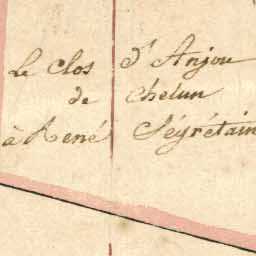 Le Clos d'Anjou
de Chelun
à René Ségrétain